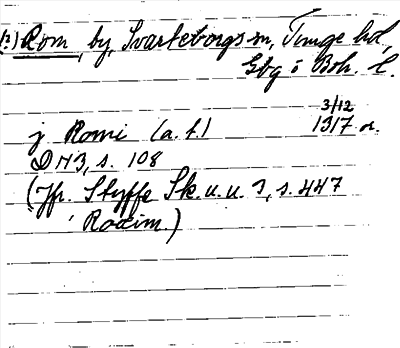 (?) Rom, by, Svarteborgs sn, Tunge hd,
Gbg o Boh. l.
3/12
j Romi (a. f.) 1317 or.
DN 3, s. 108
(Jfr. Styffe Sk. u. u. 3, s. 447
Roxim.)